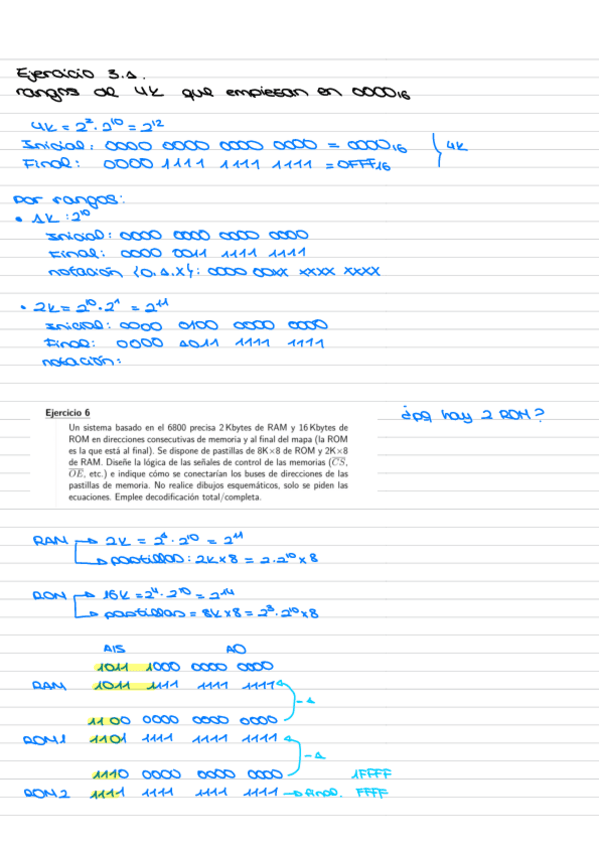 Ejercicio 3.1.
rangos de 4k que empiezan en 0000₁₆
4k = 2² · 2¹⁰ = 2¹²
Inicial: 0000 0000 0000 0000 = 0000₁₆
4k
Final: 0000 1111 1111 1111 = 0FFF₁₆
por rangos:
• 1k : 2¹⁰
Inicial: 0000 0000 0000 0000
Final: 0000 0011 1111 1111
notación {0,1,X}: 0000 00XX XXXX XXXX
• 2k = 2¹⁰ · 2¹ = 2¹¹
Inicial: 0000 0100 0000 0000
Final: 0000 1011 1111 1111
notación:
Ejercicio 6
¿pq hay 2 ROM?
Un sistema basado en el 6800 precisa 2 Kbytes de RAM y 16 Kbytes de
ROM en direcciones consecutivas de memoria y al final del mapa (la ROM
es la que está al final). Se dispone de pastillas de 8K×8 de ROM y 2K×8
de RAM. Diseñe la lógica de las señales de control de las memorias (C̅S̅,
O̅E̅, etc.) e indique cómo se conectarían los buses de direcciones de las
pastillas de memoria. No realice dibujos esquemáticos, solo se piden las
ecuaciones. Emplee decodificación total/completa.
RAM → 2k = 2¹ · 2¹⁰ = 2¹¹
→ pastillas: 2k x 8 = 2 · 2¹⁰ x 8
ROM → 16k = 2⁴ · 2¹⁰ = 2¹⁴
→ pastillas = 8k x 8 = 2³ · 2¹⁰ x 8
A15 A0
1011 1000 0000 0000
RAM 1011 1111 1111 1111
-1
1100 0000 0000 0000
ROM1 1101 1111 1111 1111
-1
1110 0000 0000 0000 1FFFF
ROM2 1111 1111 1111 1111 → final. FFFF